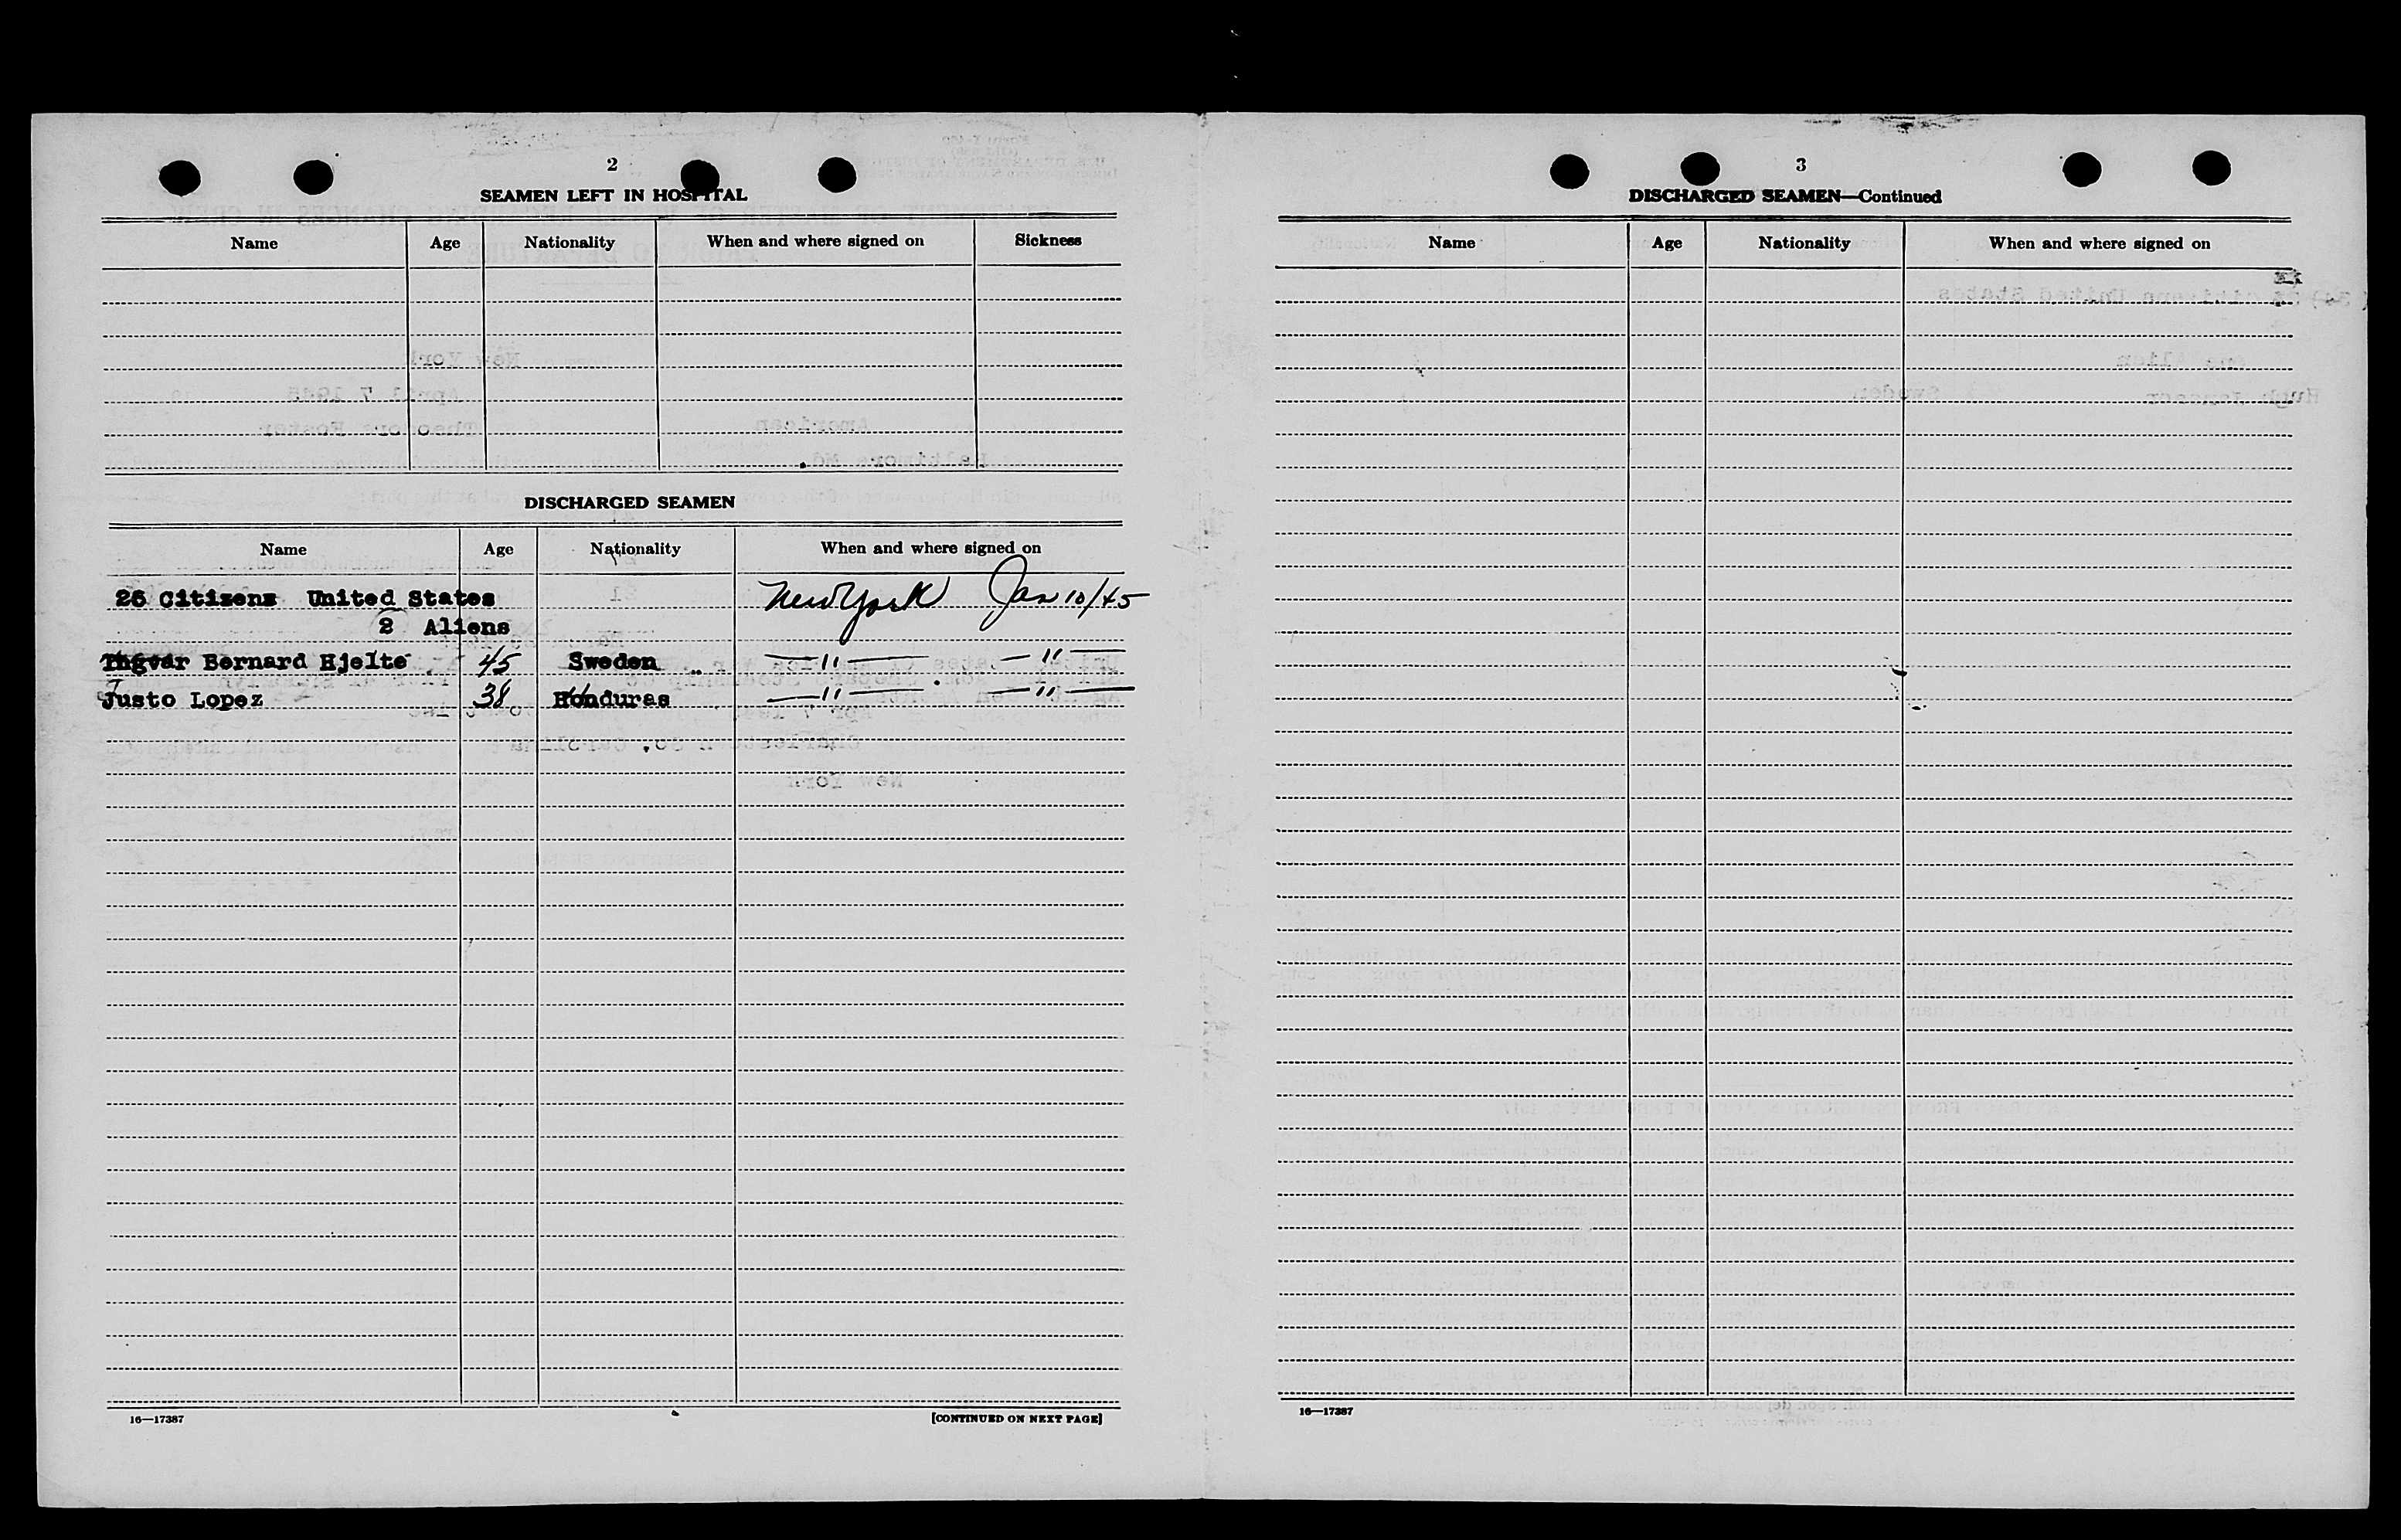 2
SEAMEN LEFT IN HOSPITAL
Name Age Nationality When and where signed on Sickness
DISCHARGED SEAMEN
Name Age Nationality When and where signed on
26 Citizens United States New York Jan 10/45
2 Aliens
Ingvar Bernard Hjelte 45 Sweden —"— —"—
Justo Lopez 38 Honduras —"— —"—
16—17387 [CONTINUED ON NEXT PAGE]
3
DISCHARGED SEAMEN—Continued
Name Age Nationality When and where signed on
16—17387